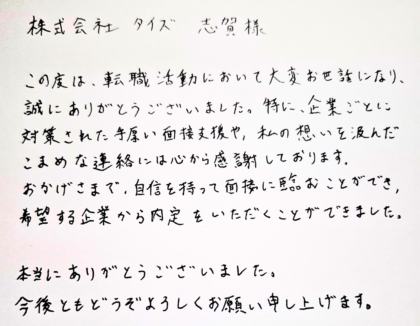 株式会社 タイズ 志賀様
この度は、転職活動において大変お世話になり、
誠にありがとうございました。特に、企業ごとに
対策された手厚い面接支援や、私の想いを汲んだ
こまめな連絡には心から感謝しております。
おかげさまで、自信を持って面接に臨むことができ、
希望する企業から内定をいただくことができました。
本当にありがとうございました。
今後ともどうぞよろしくお願い申し上げます。